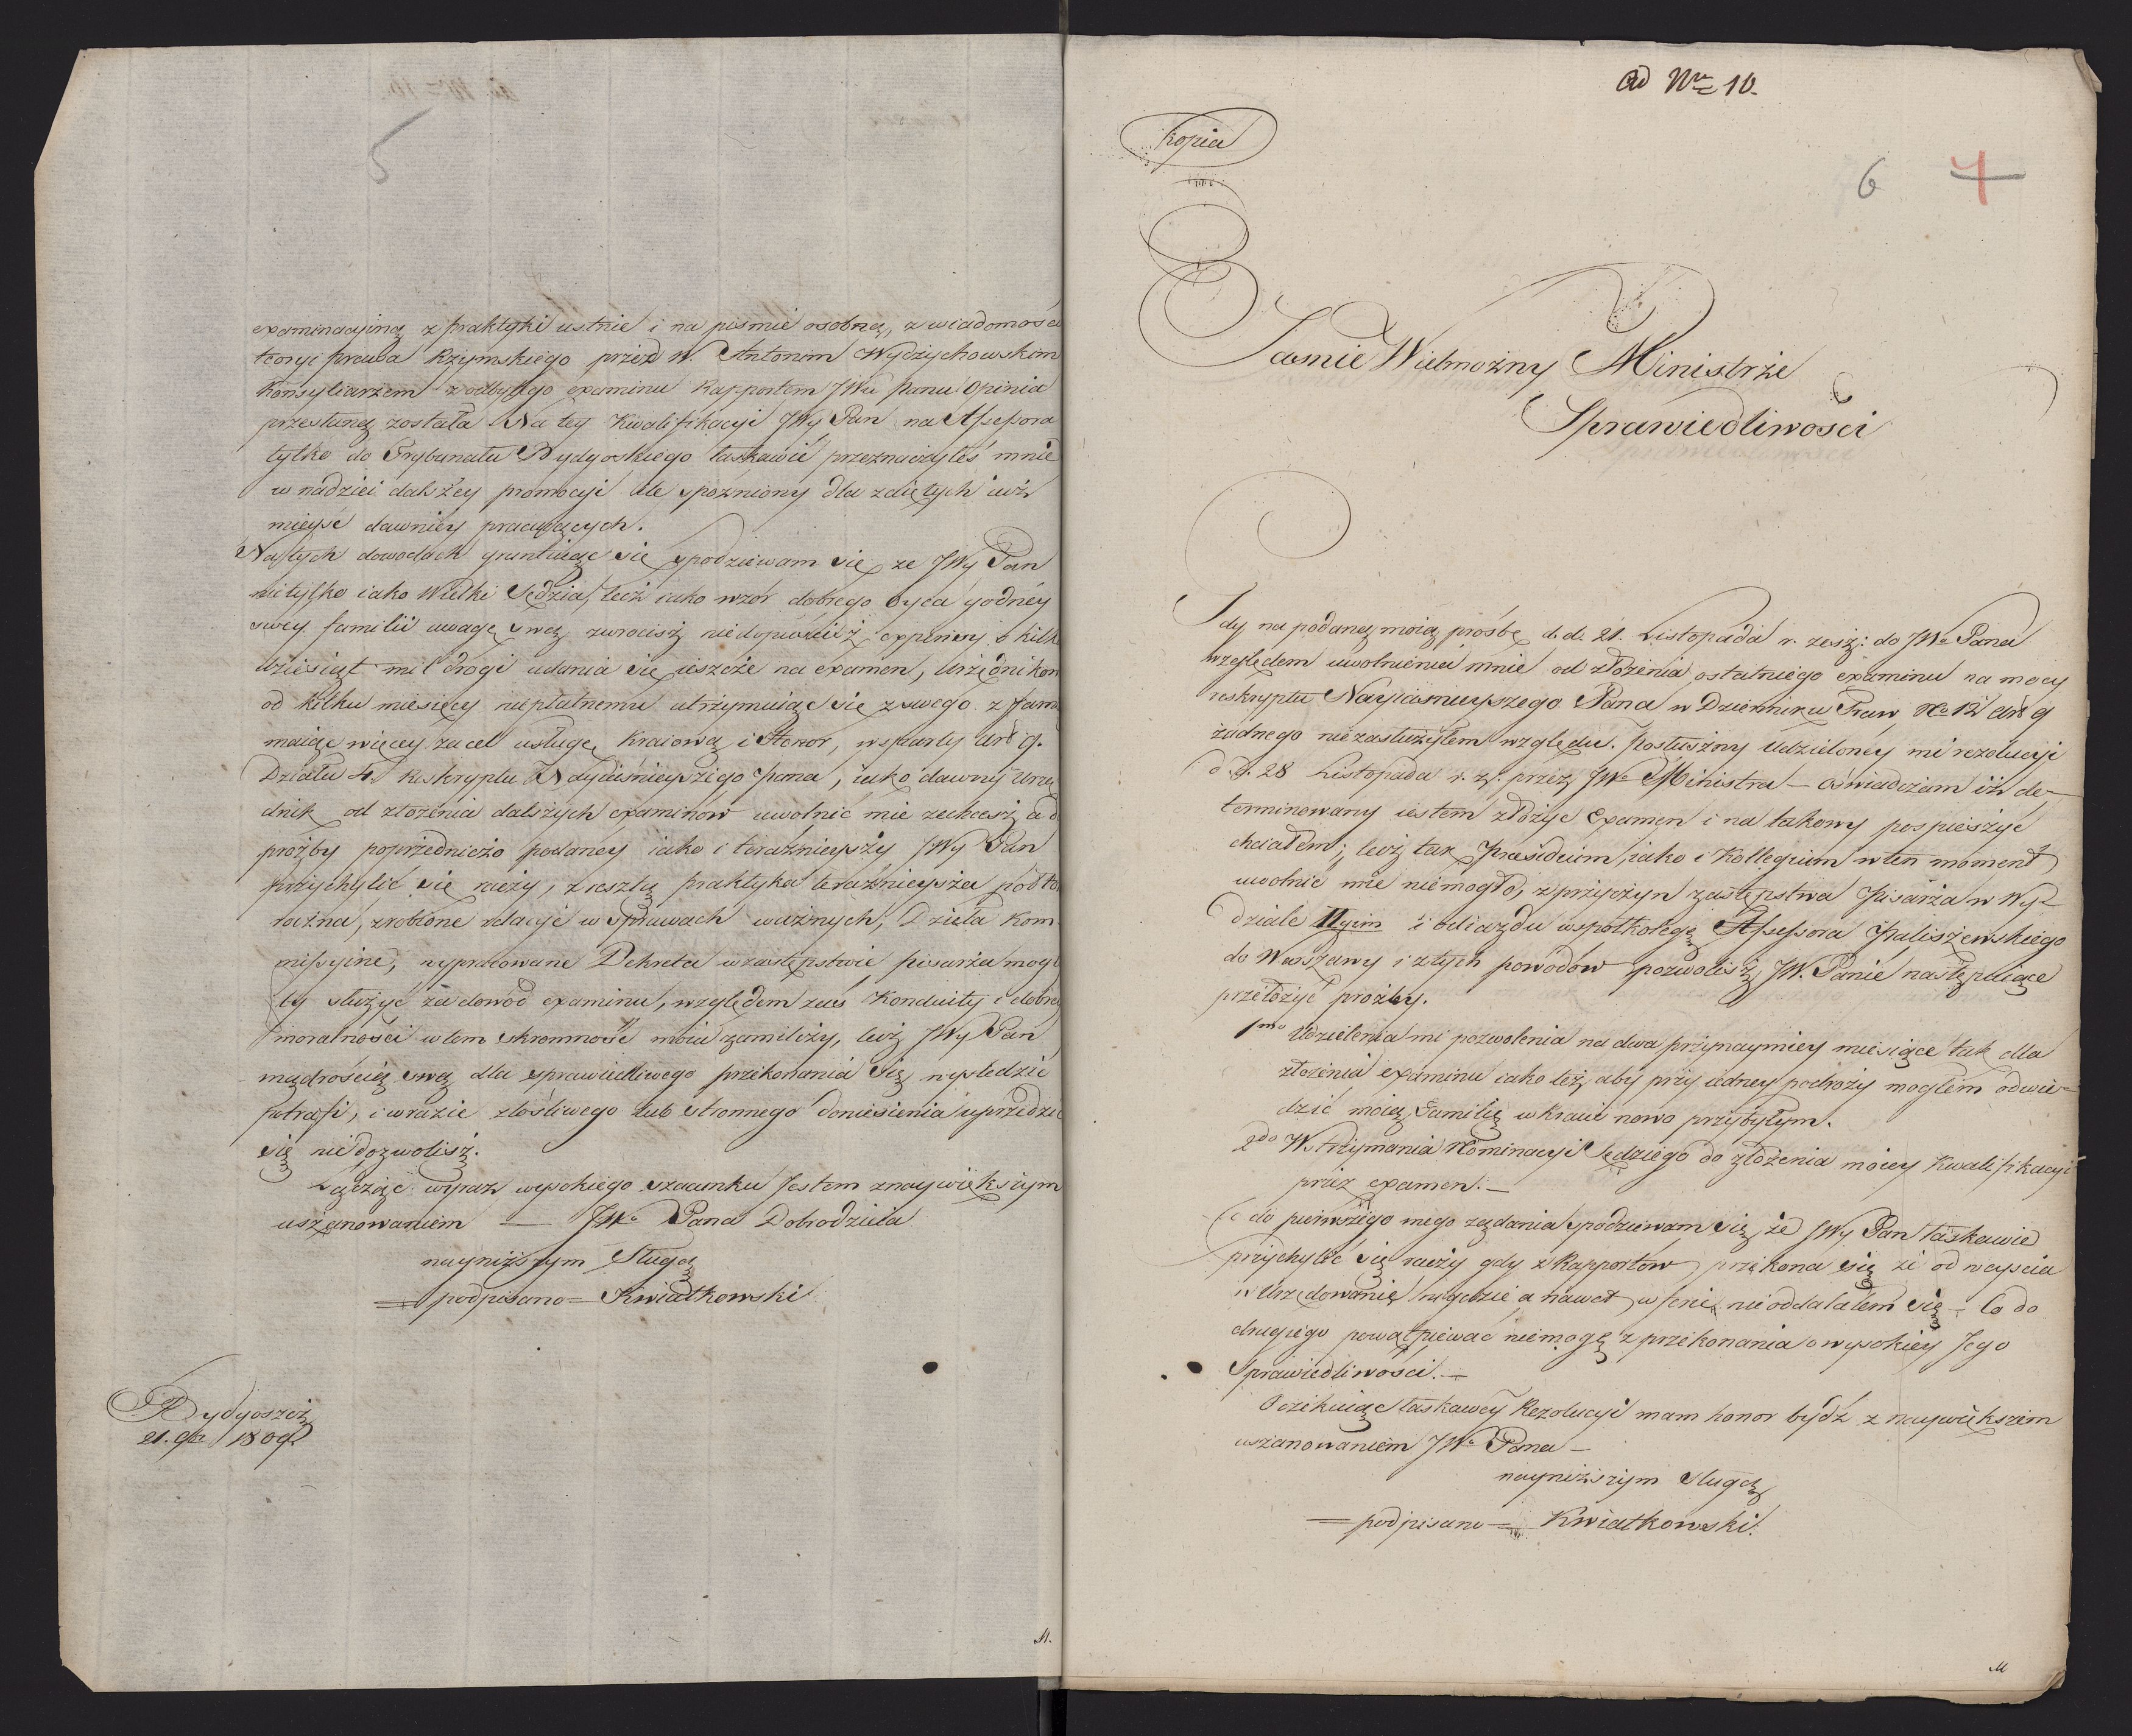 5
examinacyiną z praktyki ustnie i na pismie osobną, z wiadomości
teoryi prawa Rzymskiego przed W. Antonim Wydzychowskim
Konsyliarzem z odbytego examinu Rapportem JWu Panu Opinia
przesłaną została Na tey Kwalifikacyi JWy Pan na Assessora
tylko do Trybunału Bydgoskiego łaskawie przeznaczyłeś mnie
w nadziei dalszey promocyi ale spozniony dla zaiętych iuż
mieysc dawniey pracuiących.
Na tych dowodach gruntuiąc się spodziewam się ze JWy Pan
nietylko iako Wielki Sędzia, lecz iako wzór dobrego Oyca godnéy
swey familii uwagę swą zwrocisz niedopuścisz expensy o kilka
dziesiąt mil drogi udania się ieszcze na examen, Urzędnikow
od kilku miesięcy niepłatnemu utrzymuiąc się z swego z fami
maiąc więcey za cel usługę Kraiową i Honor, wsparty art 9.
Działu 4. Reskryptu Nayiaśnieyszego Pana, iako dawny Urzę
dnik od złożenia dalszych examinow uwolnić mie zechcesz a d
prożby poprzedniczo podaney iako i teraźnieyszy JWy Pan
przychylić się raczy, zresztą praktyka teraznieysza półto
roczna, zrobione relacye w Sprawach ważnych, Dzieła Kom
missyine, wypracowane Dekreta w zastępstwie pisarza mogł
by służyć za dowód examinu, względem zaś Konduity i dobrey
moralności w tem skromność moia zamilczy, lecz JWy Pan
mądrością swą dla sprawiedliwego przekonania się wysledzić
potrafi, i w razie złośliwego lub stronnego doniesienia uprzedzić
się nie dozwolisz.
Łącząc wyraz wysokiego szacunku Jestem z naywiększym
uszanowaniem — JWo Pana Dobrodzieia
nayniższym Sługą
= podpisano = Kwiatkowski
Bydgoszcz
21. 9br 1809.
M.
ad Nro 10.
Kopia
6 7
Jasnie Wielmożny Ministrze
Sprawiedliwości
Gdy na podaną moią prośbę d. d. 21. Listopada r. zesz: do JWo Pana
względem uwolnienia mnie od złożenia ostatniego examinu na mocy
reskryptu Nayiasnieyszego Pana w Dzienniku Praw No 12 art 9
żadnego niezasłużyłem względu. Posłuszny Udzieloney mi rezolucyi
d. d. 28 Listopada r. z. przez JWo Ministra — oświadczam iż de-
terminowany iestem złożyć Examen i na takowy pospieszyć
chciałem; lecz tak Praesidium, iako i Kollegium w ten moment
uwolnic mie niemogło, z przyczyn zastępstwa Pisarza w Wy-
dziale IIgim i odiazdu współkolegę Assessora Paliszewskiego
do Warszawy i z tych powodow pozwolisz JW. Panie następuiące
przełożyć proźby.
1mo Udzielenia mi pozwolenia na dwa przynaymniey miesiące tak dla
złożenia examinu iako też, aby przy iedney podroży mogłem odwie-
dzić moią Familię w kraiu nowo przybyłym.
2do Wstrzymania Nominacyi Sędziego do złożenia moiey Kwalifikacyi
przez examen. —
Co do pierwszego mego żądania spodziewam się, że JWy Pan łaskawie
przychylić się raczy gdy z Rapportow przekona się że od weyscia
w Urzędowanie nigdzie a nawet w ferie nieoddalałem się — Co do
drugiego powątpiewać niemogę z przekonania o wysokiey Jego
Sprawiedliwości. —
Oczekuiąc łaskawey Rezolucyi mam honor bydź z naywiększem
uszanowaniem JWo Pana —
nayniższym sługą
= podpisano = Kwiatkowski.
M